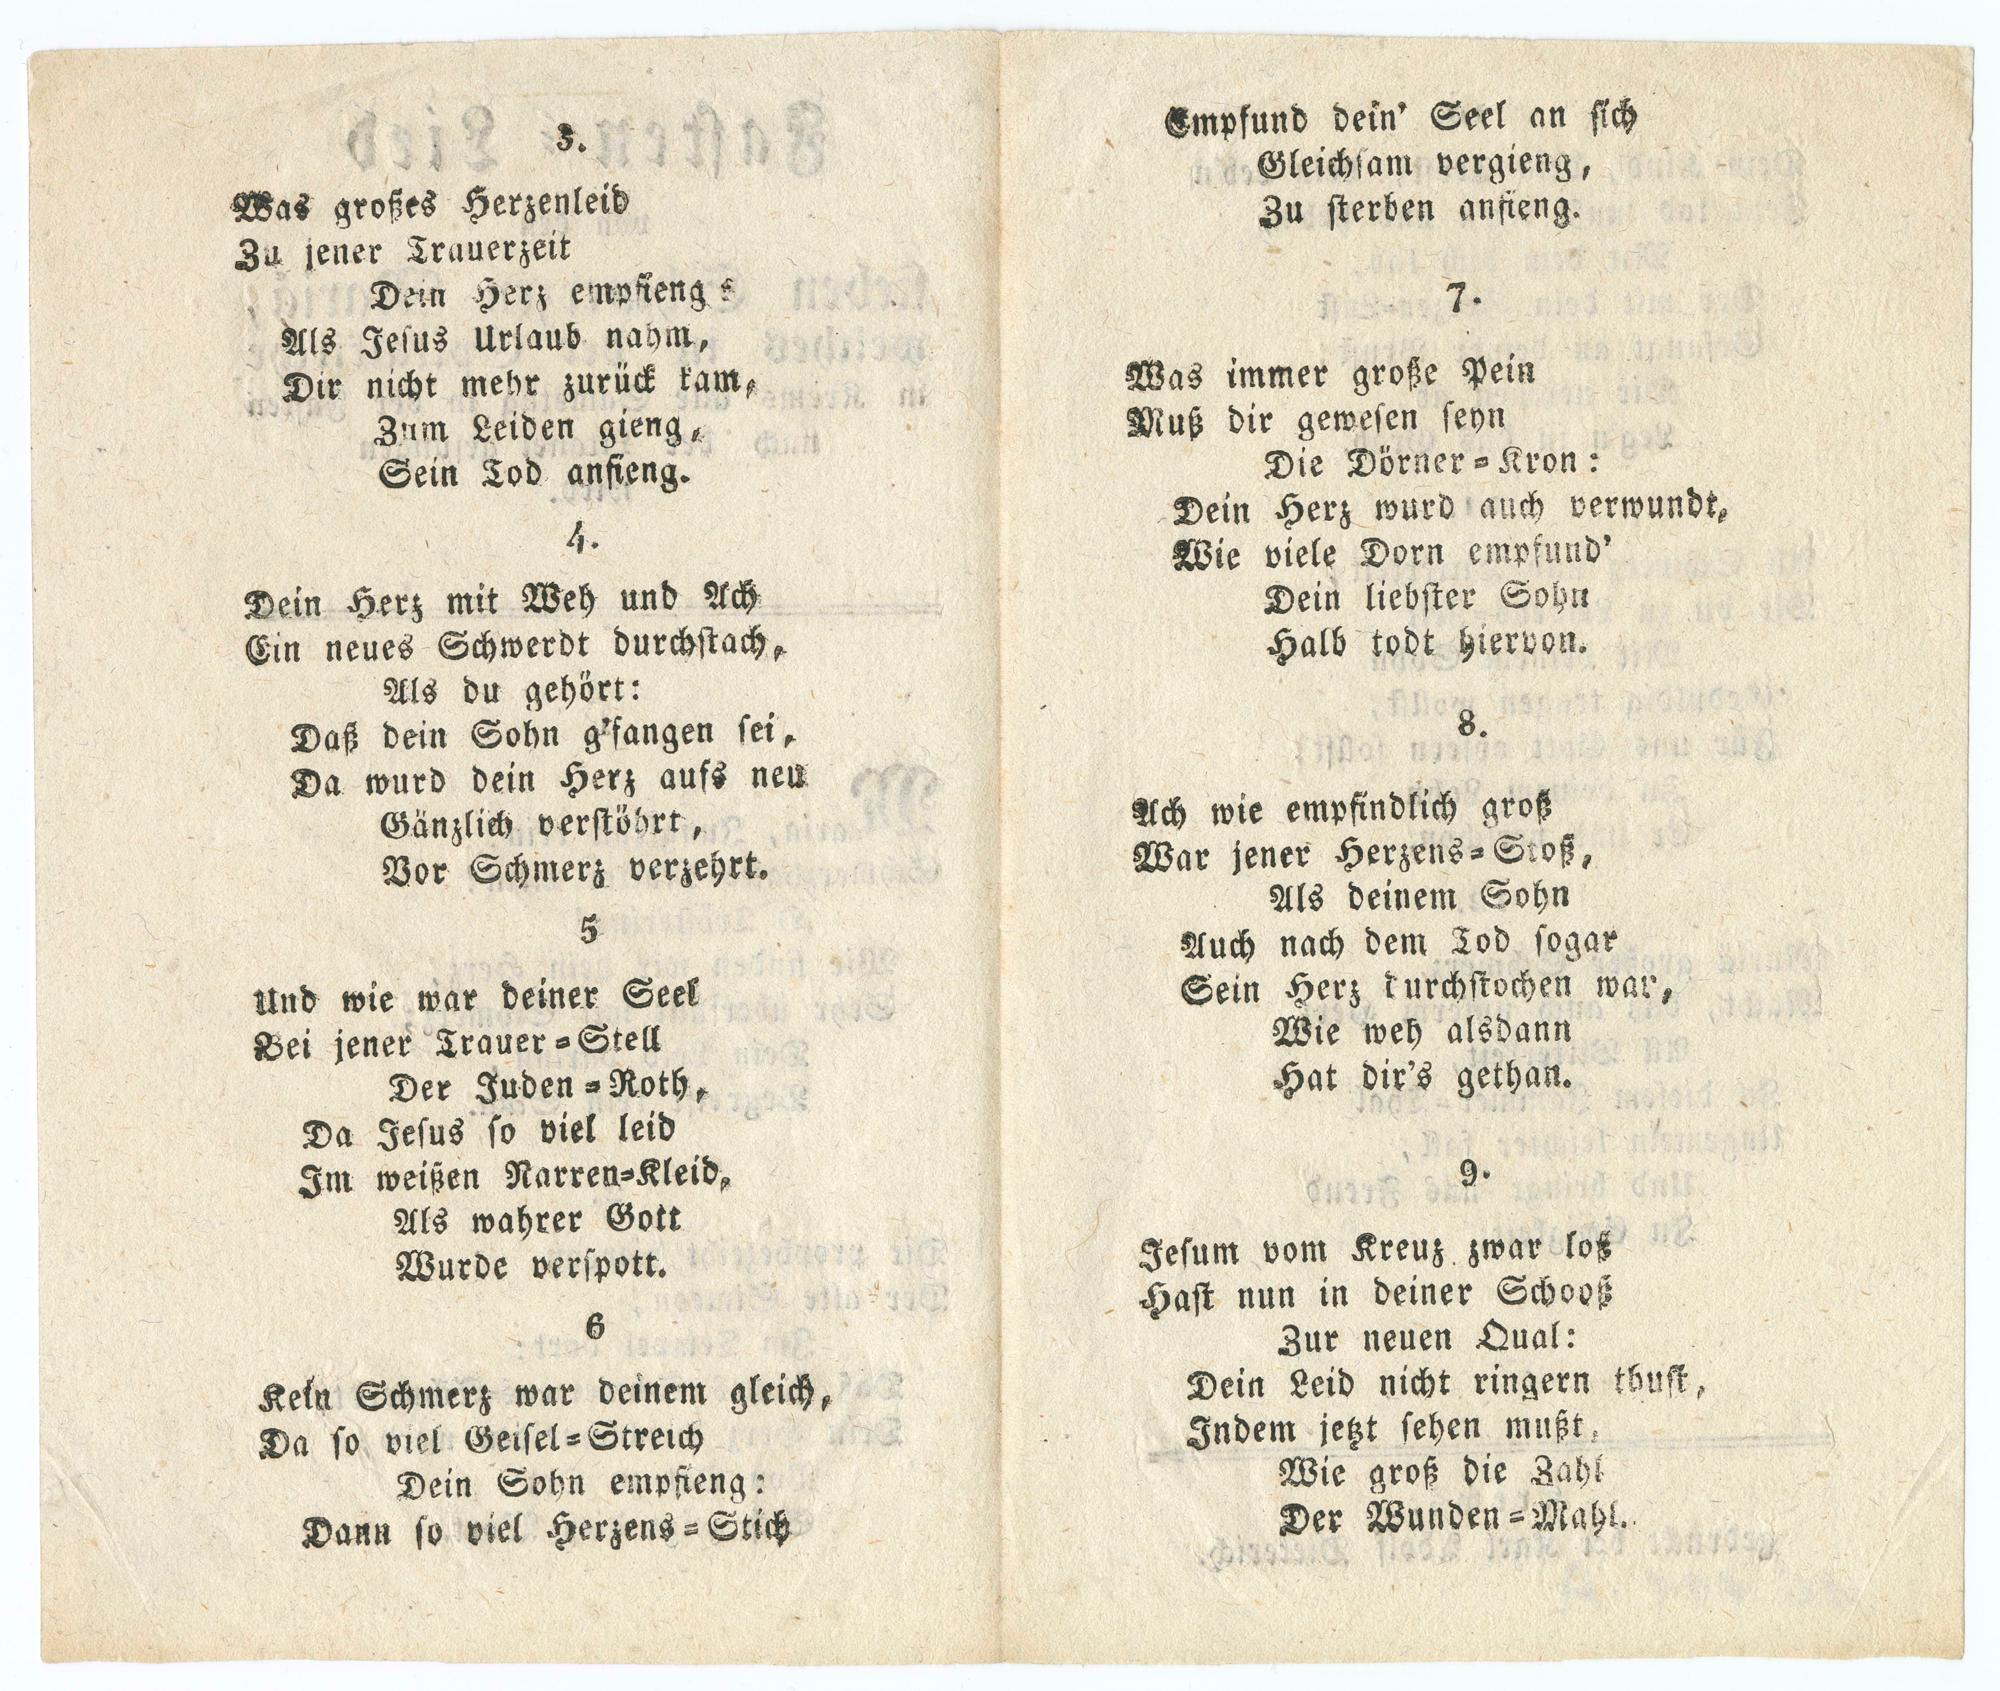 3.
Was großes Herzenleid
Zu jener Trauerzeit
Dein Herz empfieng:
Als Jesus Urlaub nahm,
Dir nicht mehr zurück kam,
Zum Leiden gieng,
Sein Tod anfieng.
4.
Dein Herz mit Weh und Ach
Ein neues Schwerdt durchstach,
Als du gehört:
Daß dein Sohn g'fangen sei,
Da wurd dein Herz aufs neu
Gänzlich verstöhrt,
Vor Schmerz verzehrt.
5
Und wie war deiner Seel
Bei jener Trauer=Stell
Der Juden=Roth,
Da Jesus so viel leid
Im weißen Narren=Kleid,
Als wahrer Gott
Wurde verspott.
6
Kein Schmerz war deinem gleich,
Da so viel Geisel=Streich
Dein Sohn empfieng:
Dann so viel Herzens=Stich
Empfund dein' Seel an sich
Gleichsam vergieng,
Zu sterben anfieng.
7.
Was immer große Pein
Muß dir gewesen seyn
Die Dörner=Kron:
Dein Herz wurd auch verwundt,
Wie viele Dorn empfund'
Dein liebster Sohn
Halb todt hiervon.
8.
Ach wie empfindlich groß
War jener Herzens=Stoß,
Als deinem Sohn
Auch nach dem Tod sogar
Sein Herz durchstochen war,
Wie weh alsdann
Hat dir's gethan.
9.
Jesum vom Kreuz zwar loß
Hast nun in deiner Schooß
Zur neuen Qual:
Dein Leid nicht ringern thust,
Indem jetzt sehen mußt,
Wie groß die Zahl
Der Wunden=Mahl.